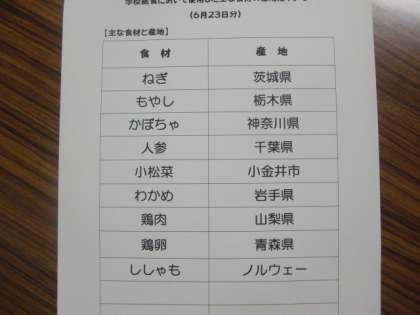 学校給食において使用した主な食材の産地
(6月23日分)
【主な食材と産地】
食材 産地
ねぎ 茨城県
もやし 栃木県
かぼちゃ 神奈川県
人参 千葉県
小松菜 小金井市
わかめ 岩手県
鶏肉 山梨県
鶏卵 青森県
ししゃも ノルウェー